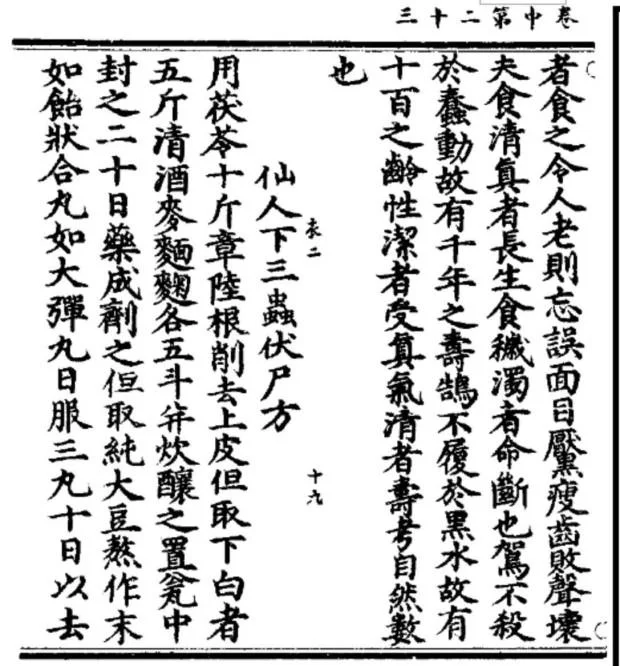 三十二第中卷
者食之令人老則忘誤面目黶瘦齒敗聲壞
夫食清真者長生食穢濁者命斷也鴛不殺
於蠢動故有千年之壽鵠不履於黑水故有
十百之齡性潔者受真氣清者壽考自然數
也
衣二
十九
仙人下三蟲伏尸方
用茯苓十斤章陸根削去上皮但取下白者
五斤清酒麥麵麴各五斗并炊釀之置瓮中
封之二十日藥成劑之但取純大豆熬作末
如飴狀合丸如大彈丸日服三丸十日以去